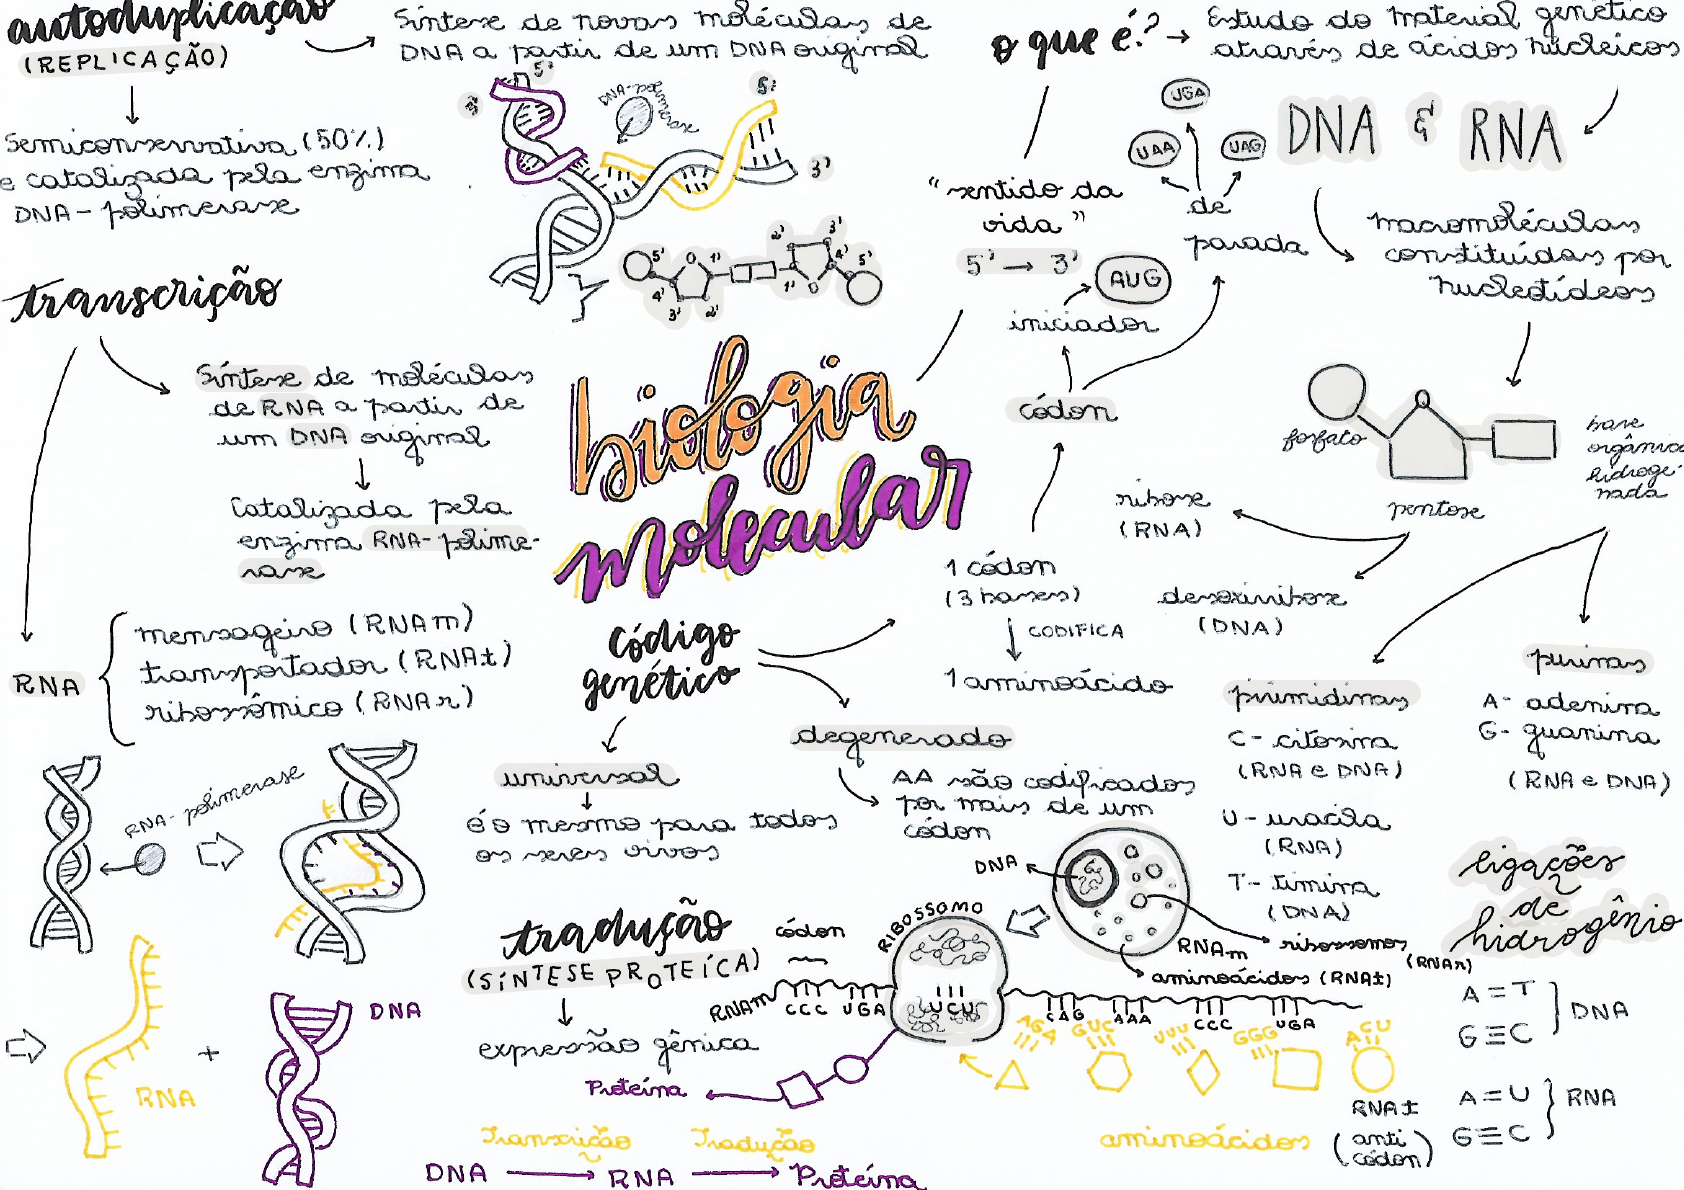 autoduplicação
(REPLICAÇÃO)
Síntese de novas moléculas de
DNA a partir de um DNA original
Semiconservativa (50%)
e catalizada pela enzima
DNA-polimerase
5'
3'
DNA-polimerase
5'
3'
5'
O
1'
4'
3'
2'
2'
3'
4'
1'
O
5'
o que é?
Estudo do material genético
através de ácidos nucleicos
DNA & RNA
UGA
UAA
UAG
de
parada
"sentido da
vida"
5' → 3'
AUG
iniciador
códon
macromoléculas
constituídas por
nucleotídeos
fosfato
O
pentose
base
orgânica
hidroge-
nada
ribose
(RNA)
desoxirribose
(DNA)
transcrição
Síntese de moléculas
de RNA a partir de
um DNA original
Catalizada pela
enzima RNA-polime-
rase
RNA
mensageiro (RNAm)
transportador (RNAt)
ribossômico (RNAr)
RNA-polimerase
RNA
+
DNA
biologia
molecular
Código
genético
1 códon
(3 bases)
CODIFICA
1 aminoácido
degenerado
AA são codificados
por mais de um
códon
universal
é o mesmo para todos
os seres vivos
pirimidinas
C- citosina
(RNA e DNA)
U- uracila
(RNA)
T- timina
(DNA)
purinas
A- adenina
G- guanina
(RNA e DNA)
ligações
de
hidrogênio
A=T
G≡C
DNA
A=U
G≡C
RNA
tradução
(SÍNTESE PROTEÍCA)
expressão gênica
códon
RIBOSSOMO
DNA
RNAm
ribossomos
(RNAr)
aminoácidos (RNAt)
RNAm
CCC UGA UCU CAG AAA CCC UGA
AGA GUC UUU GGG ACU
Proteína
aminoácidos
RNAt
(anti
códon)
Transcrição Tradução
DNA → RNA → Proteína